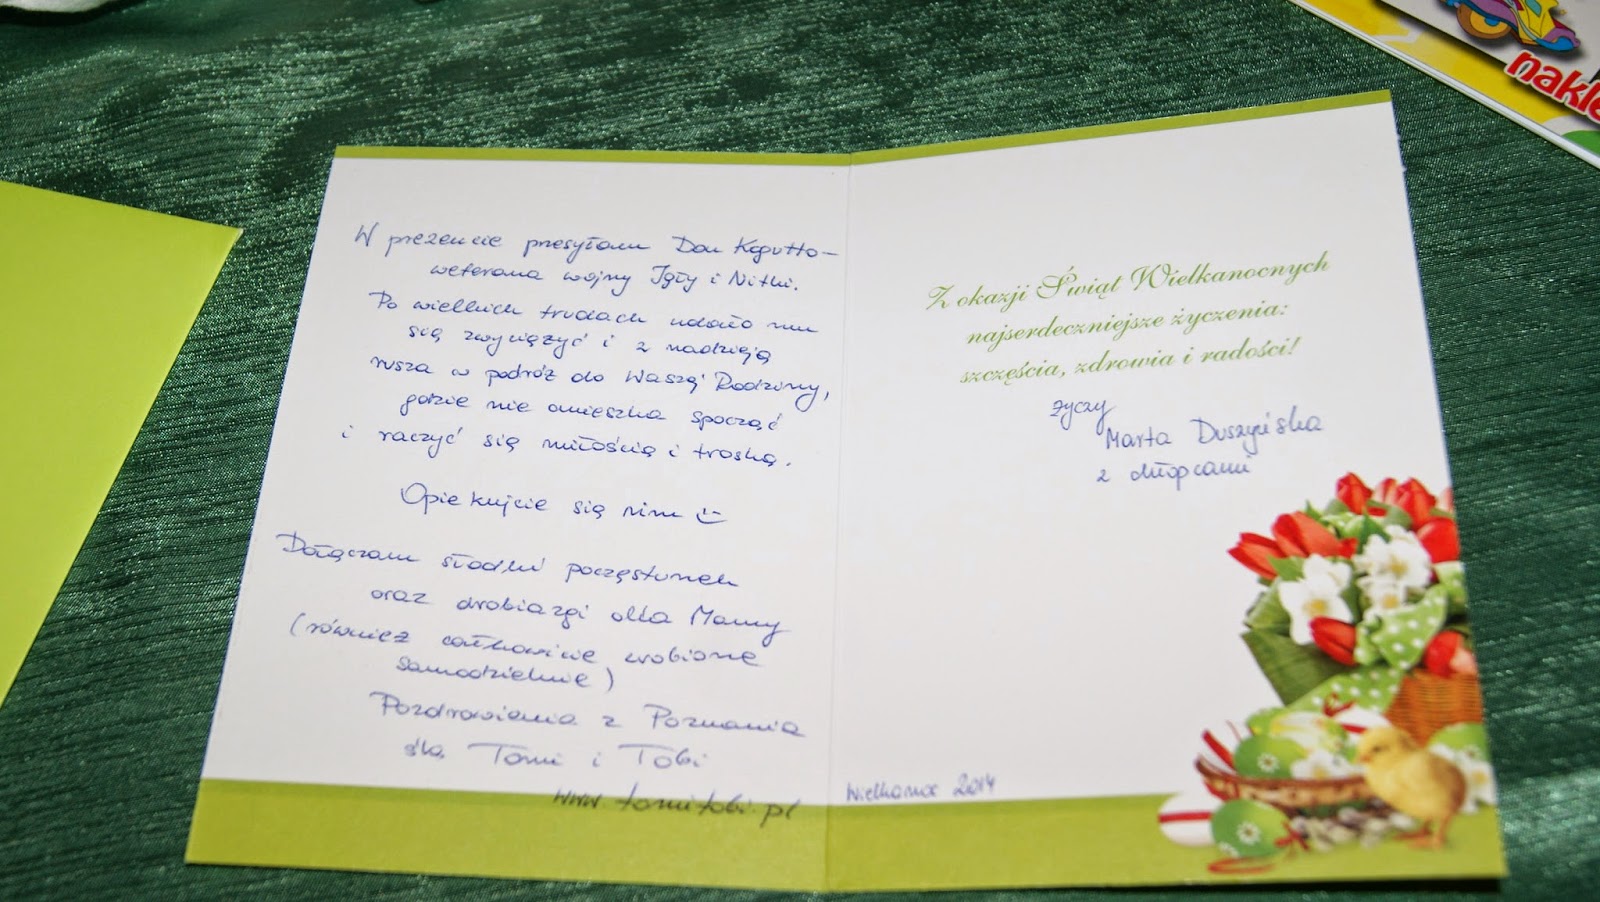 W prezencie przesyłam Don Kogutto -
weterana wojny Igły i Nitki.
Po wielkich trudach udało mu
się zwyciężyć i z nadzieją
rusza w podróż do Waszej Rodziny,
gdzie nie omieszka spocząć
i raczyć się miłością i troską.
Opiekujcie się nim :)
Dołączam słodki poczęstunek
oraz drobiazgi dla Mamy
(również całkowicie zrobione
samodzielnie)
Pozdrowienia z Poznania
śle Tomi i Tobi
www.tomitobi.pl
Z okazji Świąt Wielkanocnych
najserdeczniejsze życzenia:
szczęścia, zdrowia i radości!
życzy
Marta Duszyńska
z chłopcami
Wielkanoc 2014
nakle